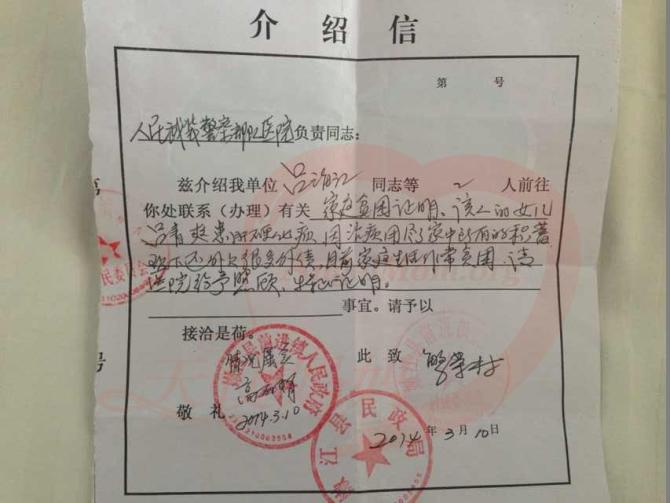 介绍信
第 号
人民武装警察部队医院负责同志：
兹介绍我单位 吕治江 同志等 2 人前往
你处联系（办理）有关 家庭贫困证明、该人的女儿
吕青爽患 硬化病，因治病用尽家中所有的积蓄
欠下 外欠很多外债，目前家庭生活非常贫困，请
医院给予照顾，特此证明。
事宜。请予以
接洽是荷。
情况属实
此致
敬礼
2014.3.10
2014年3月10日
镇人民政府
江 民政局